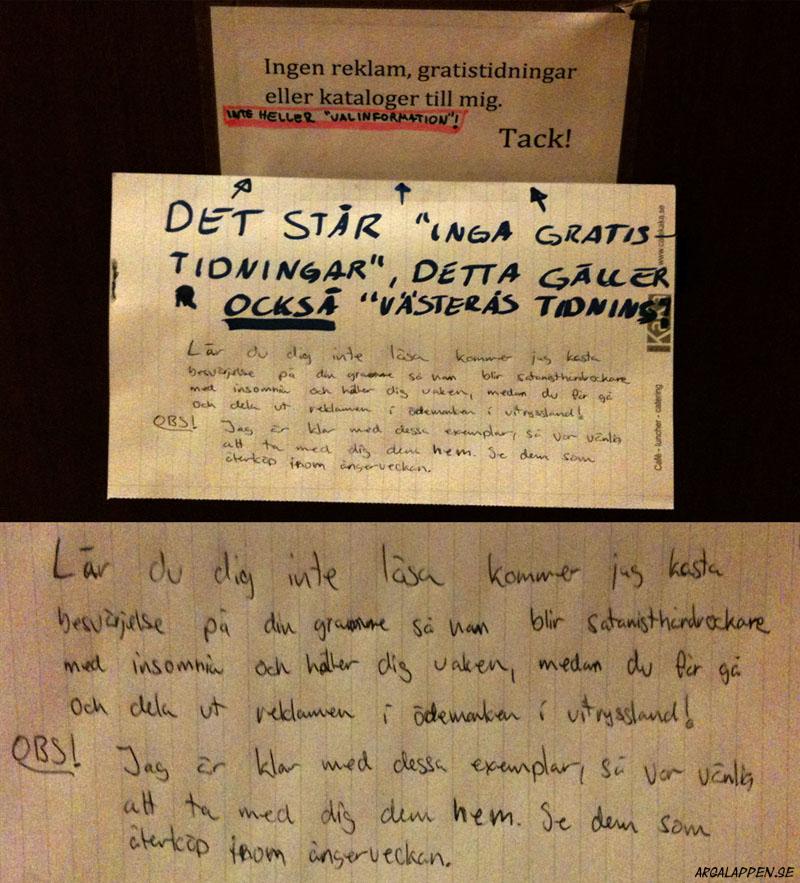 Ingen reklam, gratistidningar
eller kataloger till mig.
INTE HELLER "VALINFORMATION"!
Tack!
DET STÅR "INGA GRATIS-
TIDNINGAR", DETTA GÄLLER
OCKSÅ "VÄSTERÅS TIDNING"!
www.cafekaka.se
Café - luncher - catering
Lär du dig inte läsa kommer jag kasta
besvärjelse på din granne så han blir satanisthårdrockare
med insomnia och håller dig vaken, medan du får gå
och dela ut reklamen i ödemarken i vitryssland!
OBS! Jag är klar med dessa exemplar, så var vänlig
att ta med dig dem hem. Se dem som
återköp inom ångerveckan.
Lär du dig inte läsa kommer jag kasta
besvärjelse på din granne så han blir satanisthårdrockare
med insomnia och håller dig vaken, medan du får gå
och dela ut reklamen i ödemarken i vitryssland!
OBS! Jag är klar med dessa exemplar, så var vänlig
att ta med dig dem hem. Se dem som
återköp inom ångerveckan.
ARGALAPPEN.SE